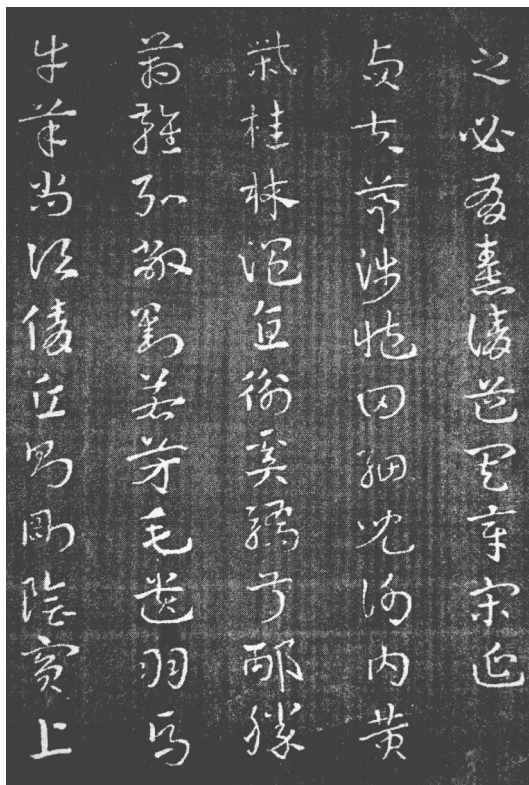 之必有憙請道其章宋延
貞夫茅涉臧田細兒謝內黃
柴桂林溫直衡奚驕叔邴勝
箱雍弘敞劉若芳毛遺羽馬
牛羊尚次倩丘則剛陰賓上